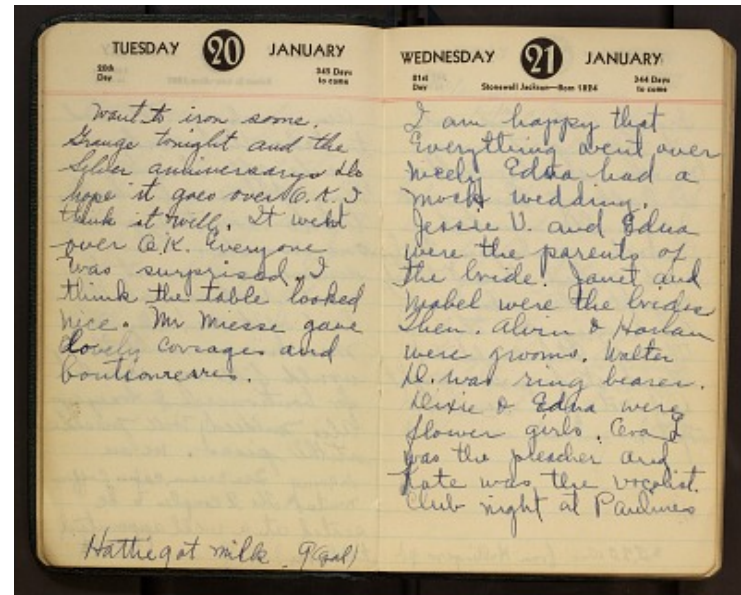 TUESDAY 20 JANUARY
20th Day
345 Days to come
Want to iron some.
Grange tonight and the
Silver anniversary. Do
hope it goes over O.K. I
think it will. It went
over O.K. Everyone
was surprised. I
think the table looked
nice. Mr Miesse gave
lovely corsages and
boutionerres.
Hattie got milk. 9 (gal)
WEDNESDAY 21 JANUARY
21st Day
Stonewall Jackson—Born 1824
344 Days to come
I am happy that
Everything went over
nicely Edna had a
mock wedding.
Jessie V. and Edna
were the parents of
the bride. Janet and
Mabel were the brides
Then. Alvin & Harlan
were grooms. Walter
D. was ring bearer.
Dixie & Edna were
flower girls. Cora
was the pleacher and
Kate was the vocalist.
Club night at Paulines